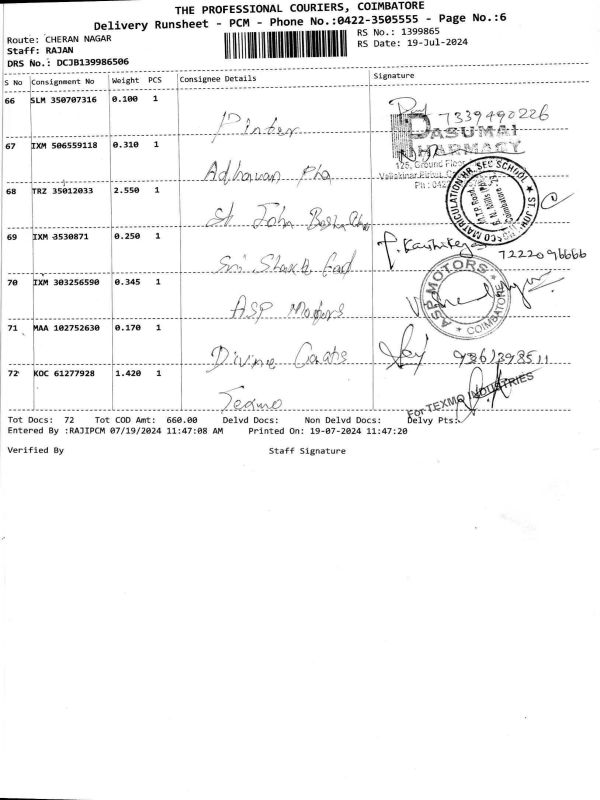 THE PROFESSIONAL COURIERS, COIMBATORE
Delivery Runsheet - PCM - Phone No.:0422-3505555 - Page No.:6
Route: CHERAN NAGAR
RS No.: 1399865
Staff: RAJAN
RS Date: 19-Jul-2024
DRS No.: DCJB139986506
S No Consignment No Weight PCS Consignee Details Signature
66 SLM 350707316 0.100 1
Pinter 7339490226
PASUMAI
PHARMACY
67 IXM 506559118 0.310 1
Adhavan Pha
126, Ground Floor
Ph : 042
68 TRZ 35012033 2.550 1
St John
MATRICULATION HR. SEC SCHOOL ★ ST. JOHN BOSCO
Coimbatore
69 IXM 3530871 0.250 1
Sri 7222096666
70 IXM 303256590 0.345 1
ASP Motors
ASP MOTORS ★ COIMBATORE ★
71 MAA 102752630 0.170 1
Divine 9361398511
72 KOC 61277928 1.420 1
Texmo
For TEXMO INDUSTRIES
Tot Docs: 72 Tot COD Amt: 660.00 Delvd Docs: Non Delvd Docs: Delvy Pts:
Entered By :RAJIPCM 07/19/2024 11:47:08 AM Printed On: 19-07-2024 11:47:20
Verified By Staff Signature